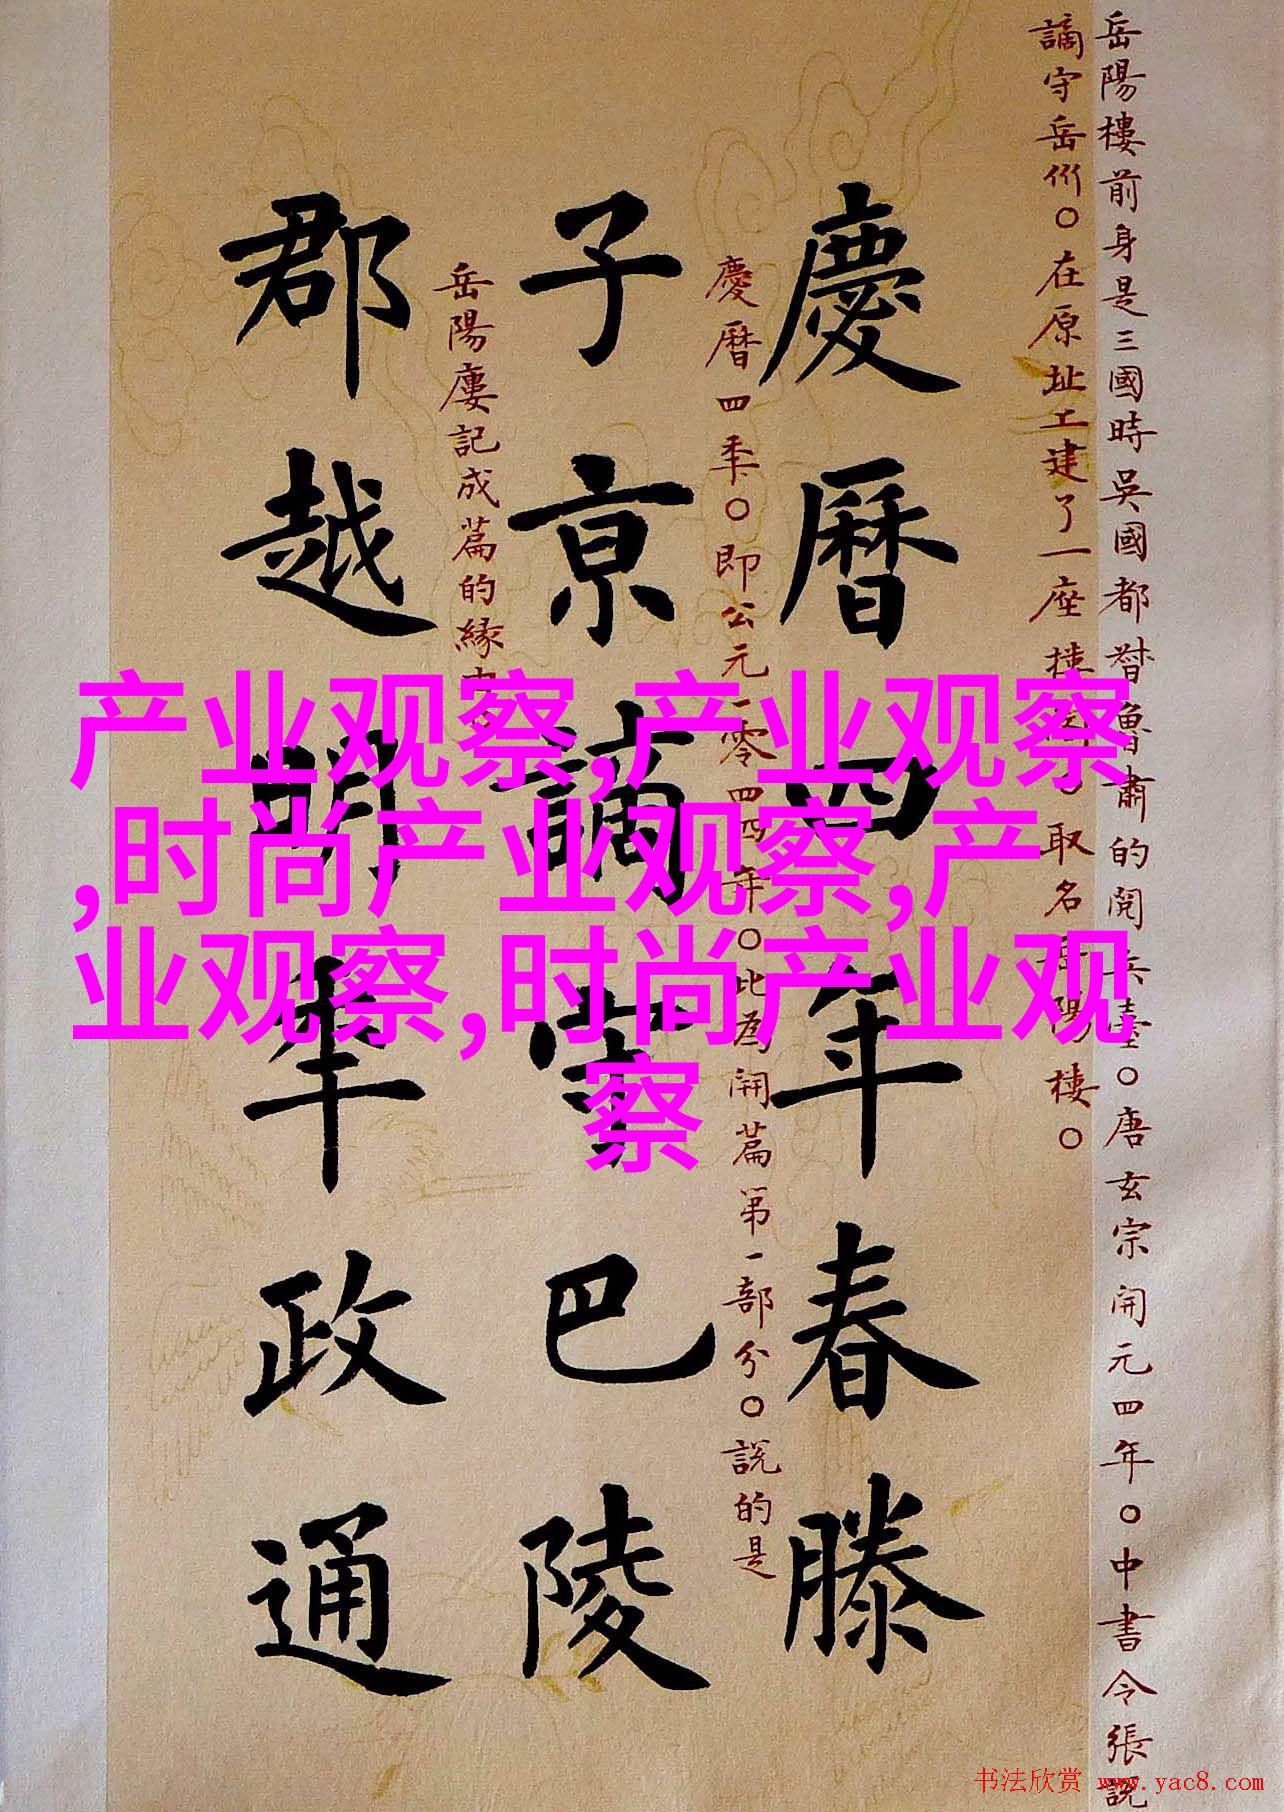 岳陽樓前身是三國時吳國都督魯肅的閱兵臺○唐玄宗開元四年○中書令張説
謫守岳州○在原址工建了一座樓閣○取名岳陽樓○
慶曆四年春滕
慶曆四年○即公元一零四四年○此為開篇第一部分○説的是
子京謫守巴陵
岳陽廔記成篇的緣由
郡越明年政通
产业观察,产业观察
,时尚产业观察,产
业观察,时尚产业观
察
书法欣赏 www.yac8.com